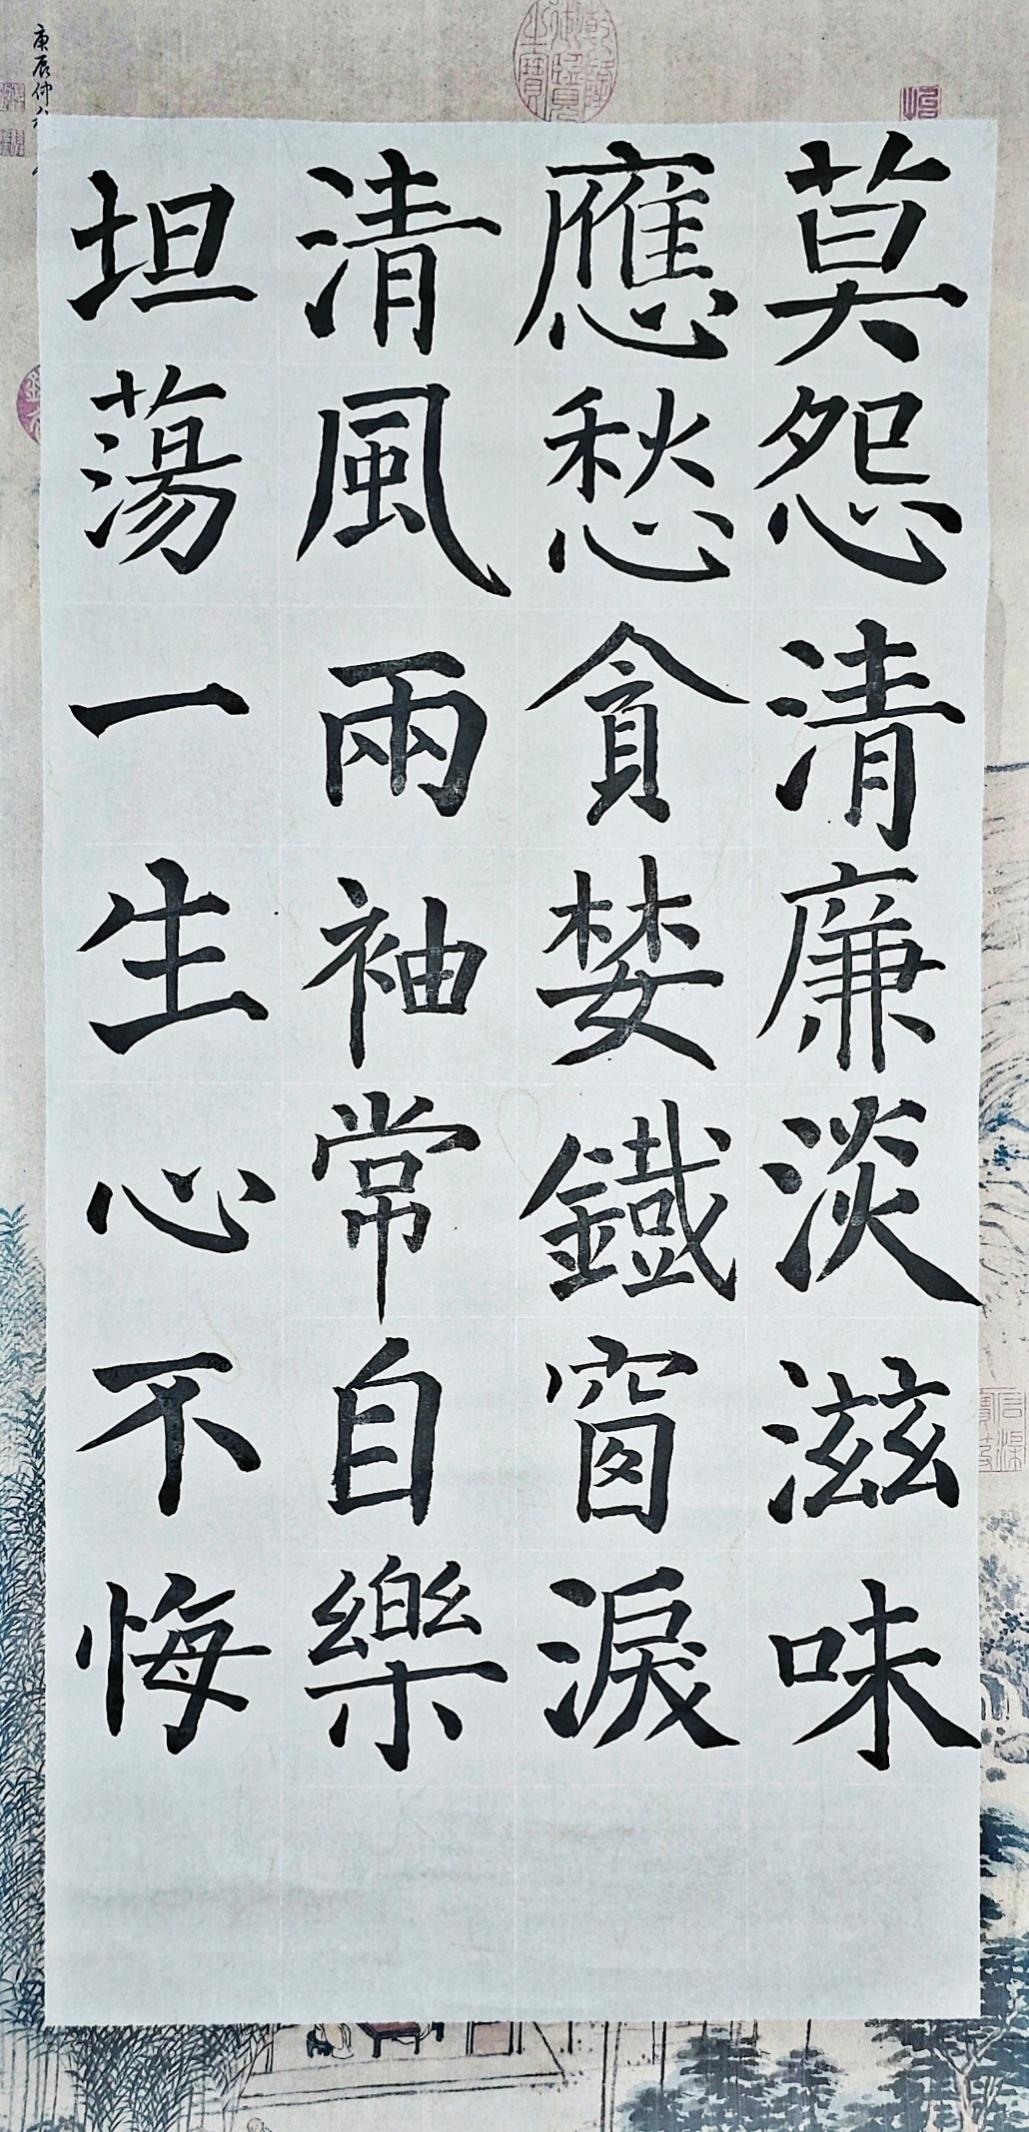 莫怨清廉淡滋味
應愁貪婪鐵窗淚
清風兩袖常自樂
坦蕩一生心不悔
庚辰仲